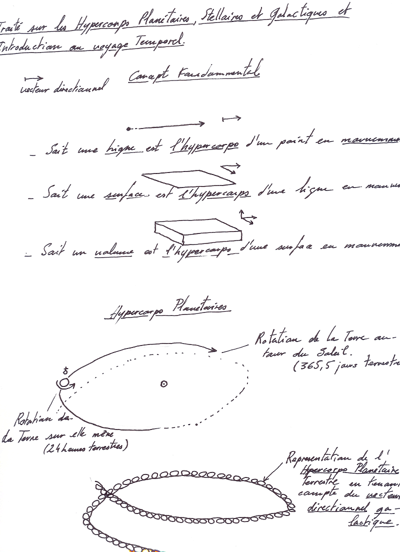 Traité sur les Hypercorps Planétaires, Stellaires et Galactiques et
Introduction au voyage Temporel.
vecteur directionnel
Concept Fondammental
- Soit une ligne est l'hypercorps d'un point en mouvement
- Soit une surface est l'hypercorps d'une ligne en mouve
- Soit un volume est l'hypercorps d'une surface en mouveme
Hypercorps Planétaires
Rotation de la Terre au-
tour du Soleil.
(365,5 jours terrestre
Rotation de
la Terre sur elle même
(24 heures terrestres)
Représentation de l'
Hpercorps Planétaire
Terrestre en tenant
compte du vecteur
directionnel ga-
lactique.